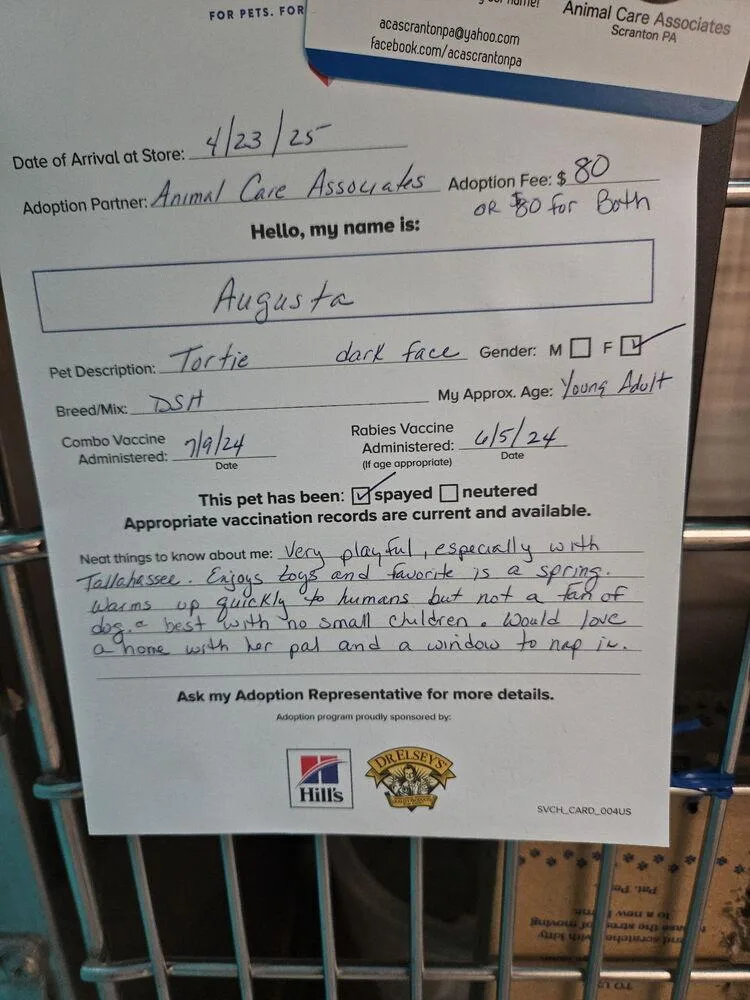 FOR PETS. FOR
Animal Care Associates
Scranton PA
acascrantonpa@yahoo.com
facebook.com/acascrantonpa
Date of Arrival at Store: 4/23/25
Adoption Partner: Animal Care Associates Adoption Fee: $ 80
OR $80 for Both
Hello, my name is:
Augusta
Pet Description: Tortie dark face Gender: M F
Breed/Mix: DSH My Approx. Age: Young Adult
Combo Vaccine Administered: 7/9/24 Rabies Vaccine Administered: 6/5/24
Date (If age appropriate) Date
This pet has been: spayed neutered
Appropriate vaccination records are current and available.
Neat things to know about me: Very playful, especially with
Tallahassee. Enjoys toys and favorite is a spring.
Warms up quickly to humans but not a fan of
dog. best with no small children. Would love
a home with her pal and a window to nap in.
Ask my Adoption Representative for more details.
Adoption program proudly sponsored by:
Hill's
DR. ELSEY'S
SVCH_CARD_004US